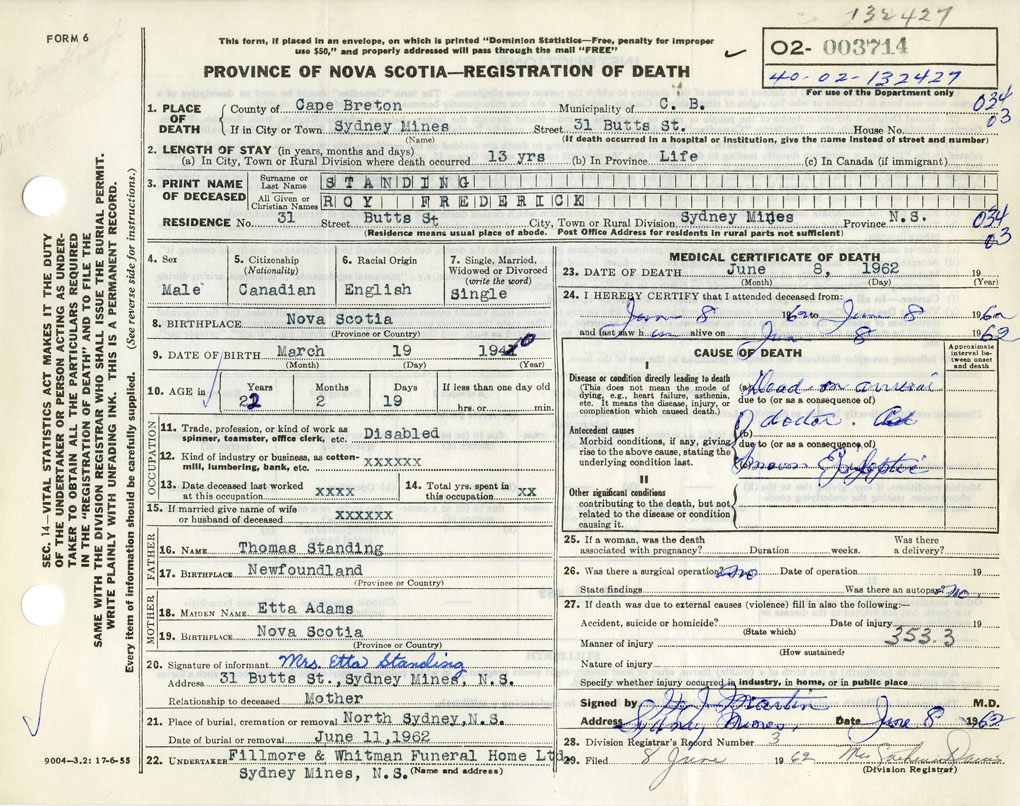 132427
FORM 6
This form, if placed in an envelope, on which is printed "Dominion Statistics—Free, penalty for improper
use $50," and properly addressed will pass through the mail "FREE"
02- 003714
40-02-132427
For use of the Department only
PROVINCE OF NOVA SCOTIA—REGISTRATION OF DEATH
034
03
1. PLACE OF DEATH County of Cape Breton Municipality of C. B.
If in City or Town Sydney Mines Street 31 Butts St. House No.
(Name) (If death occurred in a hospital or institution, give the name instead of street and number)
2. LENGTH OF STAY (in years, months and days)
(a) In City, Town or Rural Division where death occurred 13 yrs (b) In Province Life (c) In Canada (if immigrant)
3. PRINT NAME OF DECEASED
Surname or Last Name STANDING
All Given or Christian Names ROY FREDERICK
RESIDENCE No. 31 Street Butts St City, Town or Rural Division Sydney Mines Province N.S.
(Residence means usual place of abode. Post Office Address for residents in rural parts not sufficient)
034
03
4. Sex
Male
5. Citizenship
(Nationality)
Canadian
6. Racial Origin
English
7. Single, Married,
Widowed or Divorced
(write the word)
Single
8. BIRTHPLACE Nova Scotia
(Province or Country)
9. DATE OF BIRTH March 19 1940
(Month) (Day) (Year)
10. AGE in Years Months Days If less than one day old
22 2 19 hrs. or min.
OCCUPATION
11. Trade, profession, or kind of work as
spinner, teamster, office clerk, etc. Disabled
12. Kind of industry or business, as cotton-
mill, lumbering, bank, etc. xxxxxx
13. Date deceased last worked
at this occupation xxxx
14. Total yrs. spent in
this occupation xx
15. If married give name of wife
or husband of deceased xxxxxx
FATHER
16. NAME Thomas Standing
17. BIRTHPLACE Newfoundland
(Province or Country)
MOTHER
18. MAIDEN NAME Etta Adams
19. BIRTHPLACE Nova Scotia
(Province or Country)
20. Signature of informant Mrs. Etta Standing
Address 31 Butts St., Sydney Mines, N.S.
Relationship to deceased Mother
21. Place of burial, cremation or removal North Sydney, N.S.
Date of burial or removal June 11, 1962
22. UNDERTAKER Fillmore & Whitman Funeral Home Ltd.
Sydney Mines, N.S. (Name and address)
MEDICAL CERTIFICATE OF DEATH
23. DATE OF DEATH June 8, 1962 19
(Month) (Day) (Year)
24. I HEREBY CERTIFY that I attended deceased from:
June 8 1962 to June 8 1962
and last saw him alive on June 8 1962
CAUSE OF DEATH
Approximate
interval be-
tween onset
and death
I
Disease or condition directly leading to death
(This does not mean the mode of
dying, e.g., heart failure, asthenia,
etc. It means the disease, injury, or
complication which caused death.)
(a) Dead on arrival
due to (or as a consequence of)
Antecedent causes
Morbid conditions, if any, giving
rise to the above cause, stating the
underlying condition last.
(b) doctor.
due to (or as a consequence of)
(c) Known Epileptic
II
Other significant conditions
contributing to the death, but not
related to the disease or condition
causing it.
25. If a woman, was the death Was there
associated with pregnancy? Duration weeks. a delivery?
26. Was there a surgical operation? no Date of operation 19
State findings Was there an autopsy? no
27. If death was due to external causes (violence) fill in also the following:—
Accident, suicide or homicide? Date of injury 19
(State which)
353.3
Manner of injury
(How sustained)
Nature of injury
Specify whether injury occurred in industry, in home, or in public place
Signed by Martin M.D.
Address Sydney Mines, Date June 8 1962
28. Division Registrar's Record Number 3
29. Filed 8 June 1962 Mrs
(Division Registrar)
SEC. 14—VITAL STATISTICS ACT MAKES IT THE DUTY
OF THE UNDERTAKER OR PERSON ACTING AS UNDER-
TAKER TO OBTAIN ALL THE PARTICULARS REQUIRED
IN THE "REGISTRATION OF DEATH" AND TO FILE THE
SAME WITH THE DIVISION REGISTRAR WHO SHALL ISSUE THE BURIAL PERMIT.
WRITE PLAINLY WITH UNFADING INK. THIS IS A PERMANENT RECORD.
Every item of information should be carefully supplied. (See reverse side for instructions.)
9004—3.2: 17-6-55